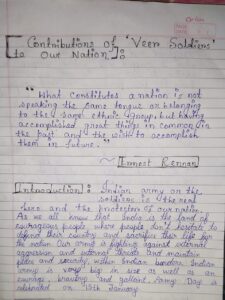 [Contributions of 'Veer Soldiers'
to Our Nation]:
" What constitutes a nation is not
speaking the same tongue or belonging
to the same ethnic group, but having
accomplished great things in common in
the past and the wish to accomplish
them in future. "
~ Ernest Rennan
Introduction : Indian army on the
soldiers is the real
hero and the protector of our nation.
As we all know that India is the land of
courageous people where people don't hesitate to
defend their country and sacrifice their life for
the nation. Our army is fighting against external
aggression and internal threats and maintain
peace and security within Indian borders. Indian
army is very big in size as well as an
courage, bravery and valiant. Army Day is
celebrated on 15th January